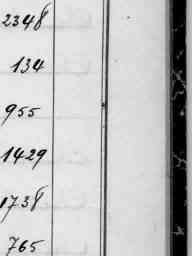 2348
134
955
1429
1738
765